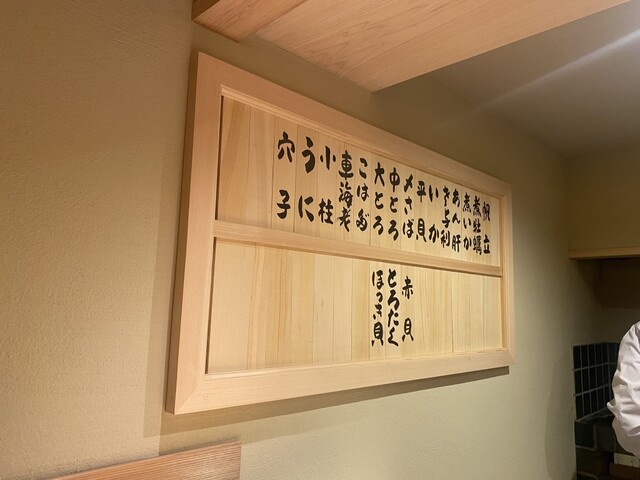 帆立
煮牡蠣
煮いか
あん肝
さより
いか
平貝
〆さば
中とろ
大とろ
こはだ
車海老
小柱
うに
穴子
赤貝
とろたく
ほっき貝